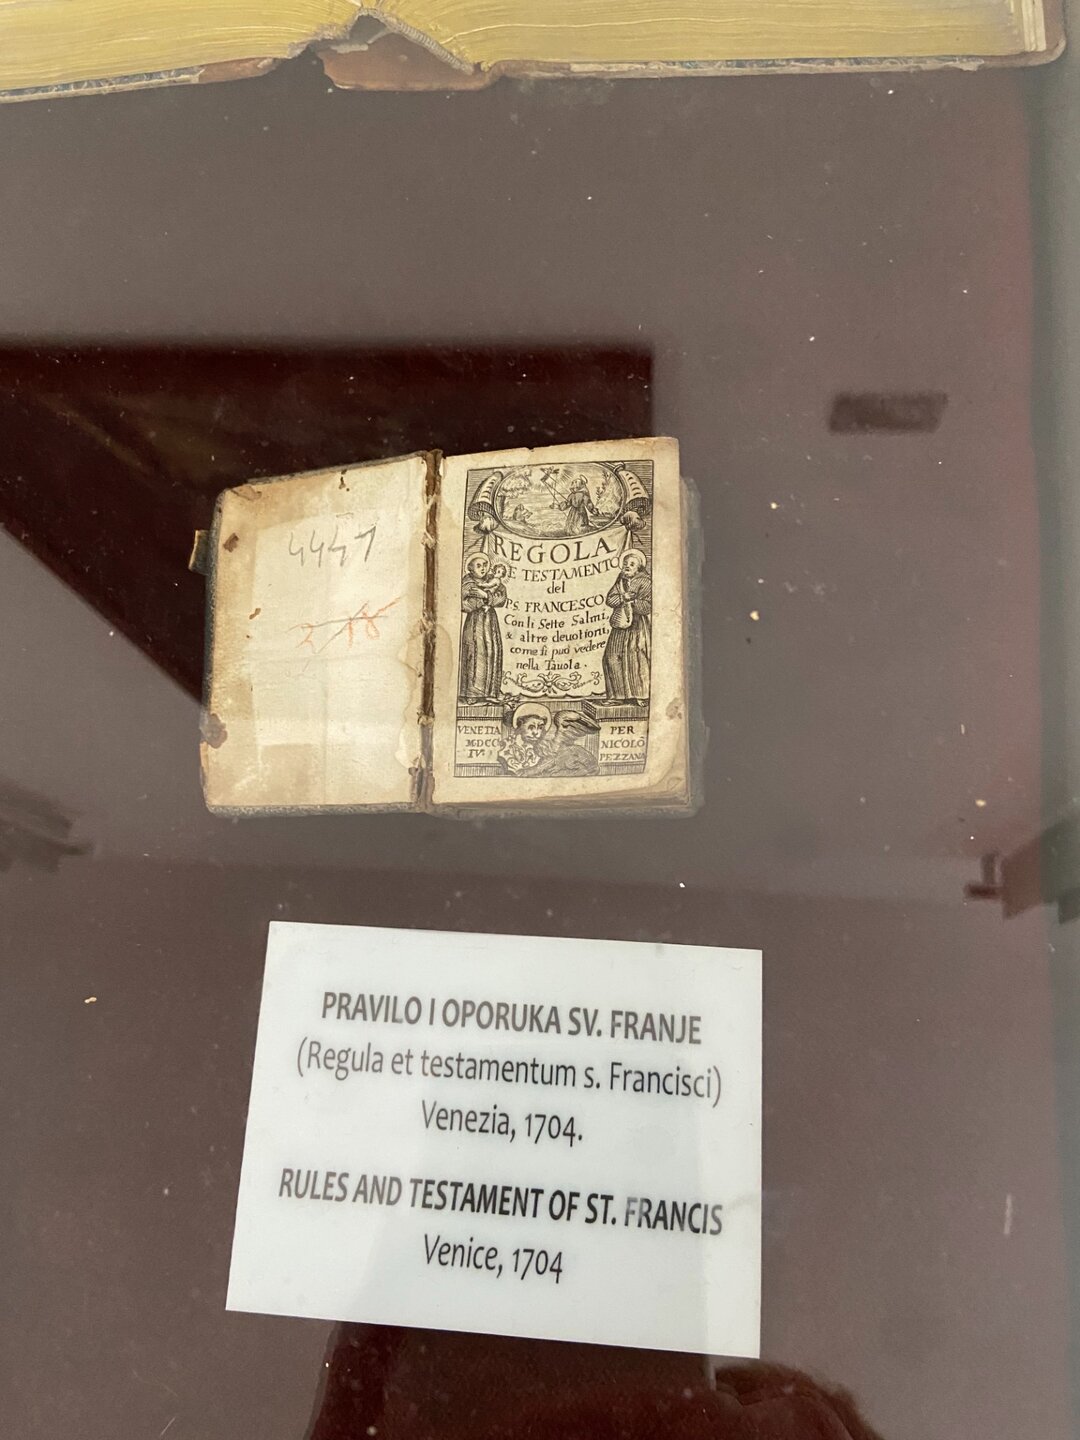 4441
2 18
REGOLA
E TESTAMENTO
del
P.S. FRANCESCO
Con li Sette Salmi,
& altre deuotioni,
come si può vedere
nella Tauola.
VENETIA
MDCC
IV.
PER
NICOLÒ
PEZZANA
PRAVILO I OPORUKA SV. FRANJE
(Regula et testamentum s. Francisci)
Venezia, 1704.
RULES AND TESTAMENT OF ST. FRANCIS
Venice, 1704